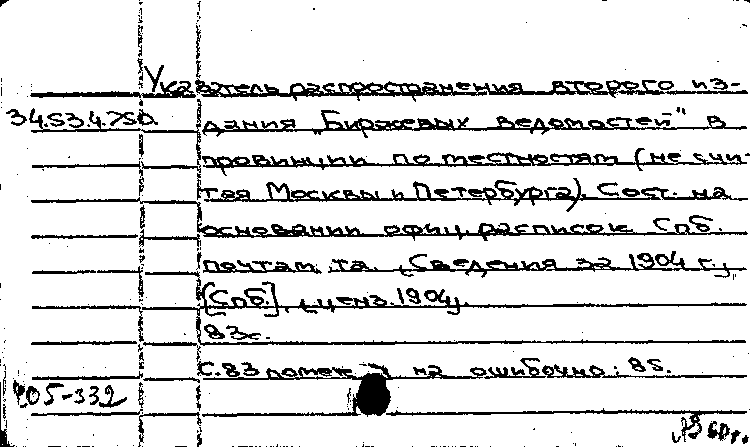 Указатель распространения второго из-
34.53.4.750. дания "Биржевых ведомостей" в
провинции по местностям (не счи-
тая Москвы и Петербурга). Сост. на
основании офиц. расписок Спб.
почтам.та. [Сведения за 1904 г.],
[Спб.], [ценз. 1904].
83с.
С. 83 на ошибочно: 85.
205-339
60г.